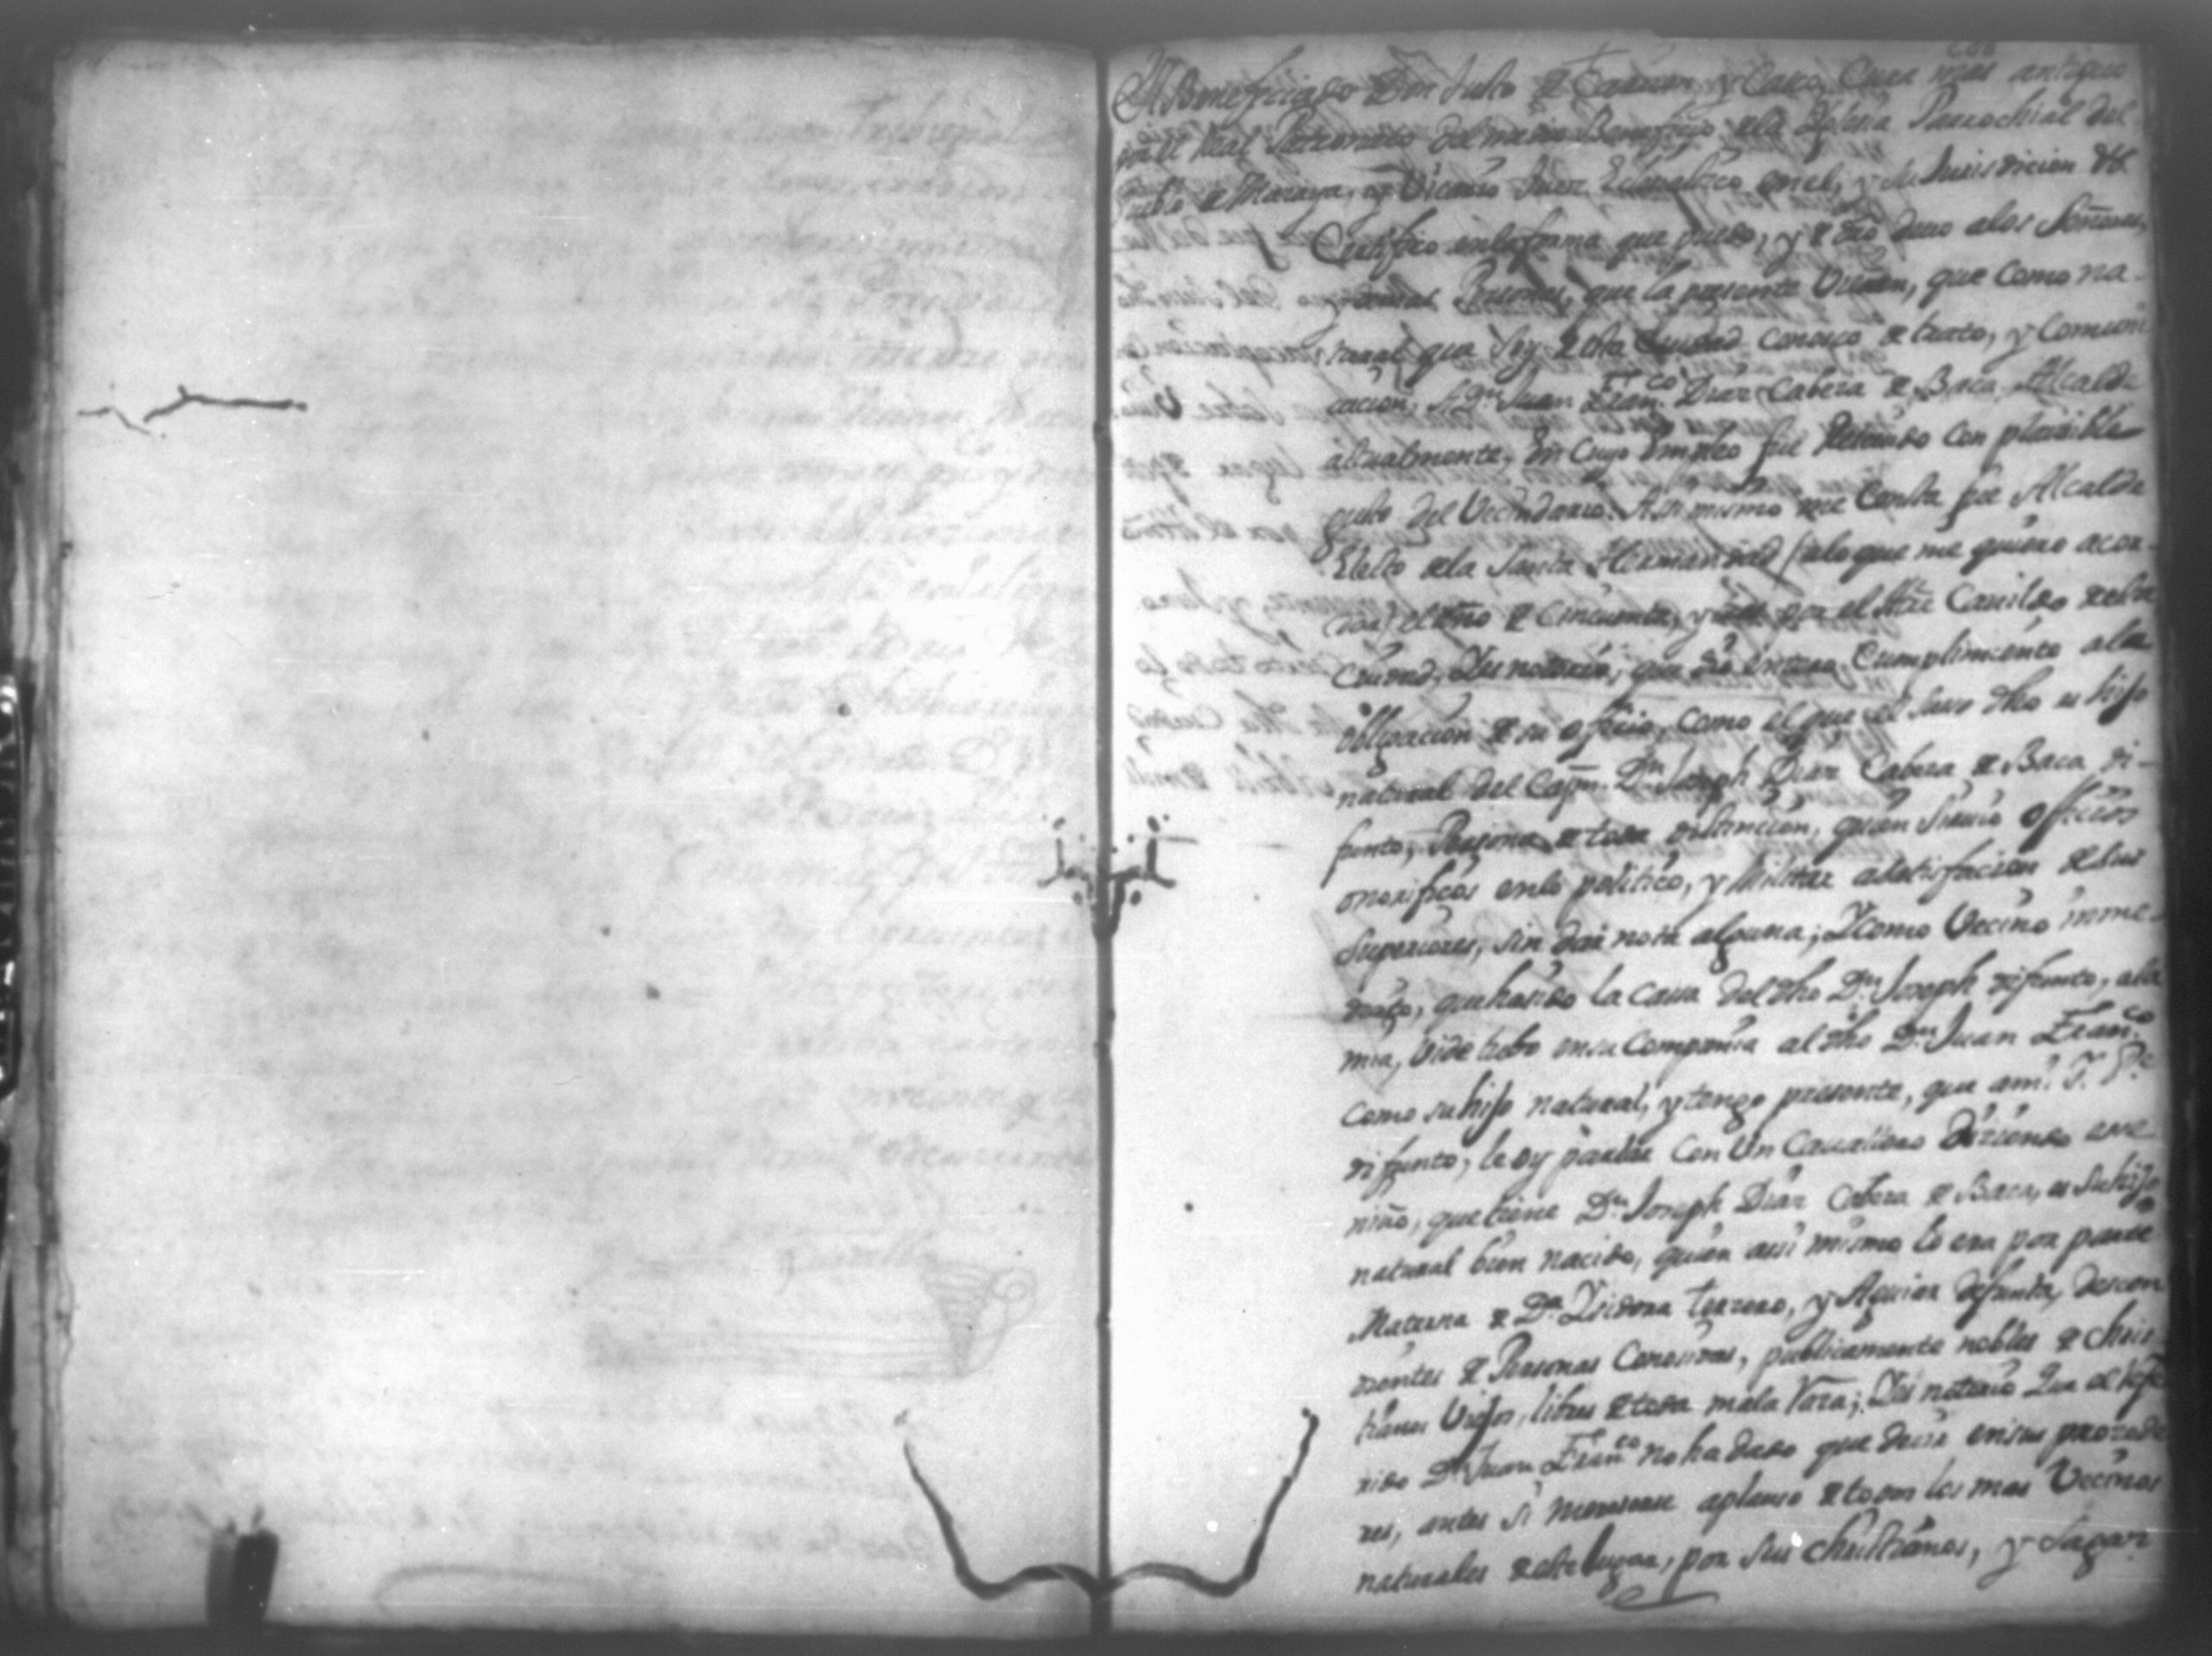 El Beneficiado Don Julio de y Caro, Cura mas antiguo
por el Real Patronato del mismo Beneficio de la Iglesia Parrochial del
Pueblo de y Vicario Juez Eclesiastico en el, y su Jurisdicion &.
Certifico en la forma que puedo, y de dro devo a los Señores,
Personas, que la presente Vieren, que como na-
tural que soy de esta Ciudad conosco de trato, y Comuni
cacion, a Dn Juan Franco Diaz Cabeza de Baca Alcalde
actualmente, en cuyo Empleo fue con plausible
gusto del Vecindario. Asi mismo me Consta fue Alcalde
Electo de la Santa Hermandad (a lo que me quiero acor-
dar) el año de Cincuenta, y por el Ille Cavildo de esta
Ciudad, Y es notorio, que dio entero Cumplimiento a la
obligacion de su officio, Como el que el suso dho es hijo
natural del Capn Dn Joseph Diaz Cabeza de Baca di-
funto, Persona de toda distincion, quien Sirvio officios
onorificos en lo politico, y Militar a satisfacion de sus
Superiores, sin dar nota alguna; Y como Vecino inme-
diato, que ha sido la casa del dho Dn Joseph difunto, a la
mia, vide tubo en su Compañia al dho Dn Juan Franco
Como su hijo natural, y tengo presente, que a mi
difunto, le oy parlar Con Un Cavallero diziendo esse
niño, que tiene Dn Joseph Diaz Cabeza de Baca, es su hijo
natural bien nacido, quien asi mismo lo era por parte
Materna de Da Isidora terrero, y Aguiar defunta, descen
dientes de Personas Conosidas, publicamente nobles de chris
tianos Viejos, libres de toda mala Raza; Y es notorio Que el Refe
rido Dn Juan Franco no ha dado que decir en sus procede
res, antes si aplauso de todos los mas Vecinos
naturales de este lugar, por sus christianos, y